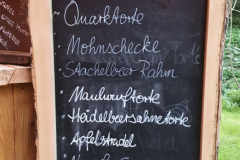 Quarktorte
Mohnschecke
Stachelbeer Rahm
Maulwurftorte
Heidelbeersahnetorte
Apfelstrudel